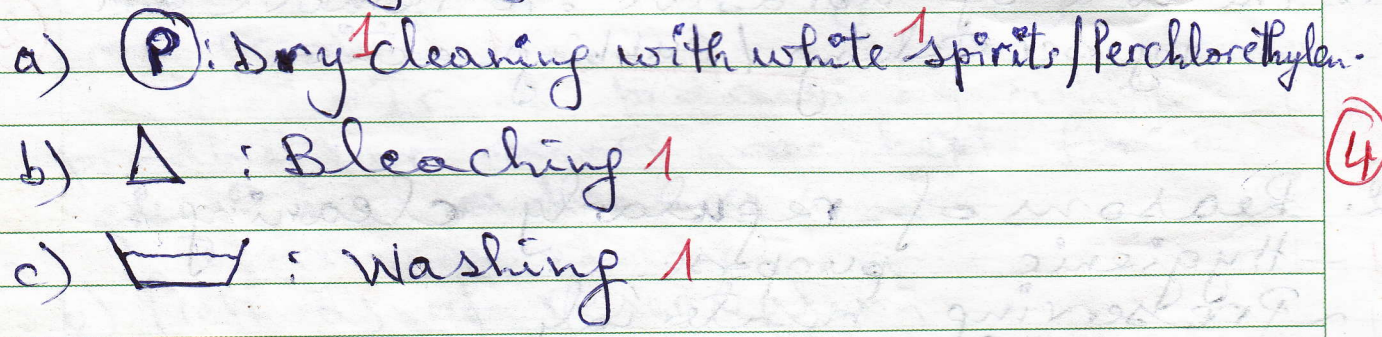 a) Ⓟ: Dry 1 cleaning with white 1 spirits/Perchlorethylen.
b) △ : Bleaching 1
4
c) : Washing 1